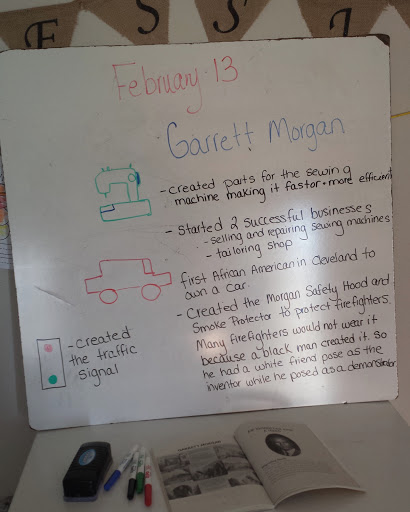 E S S I
February 13
Garrett Morgan
- created parts for the sewing
machine making it faster + more efficient
- started 2 successful businesses
- selling and repairing sewing machines
- tailoring shop
first African American in Cleveland to
own a car.
- Created the Morgan Safety Hood and
Smoke Protector to protect firefighters.
Many firefighters would not wear it
because a black man created it. So
he had a white friend pose as the
inventor while he posed as a demonstrator
- created
the traffic
signal